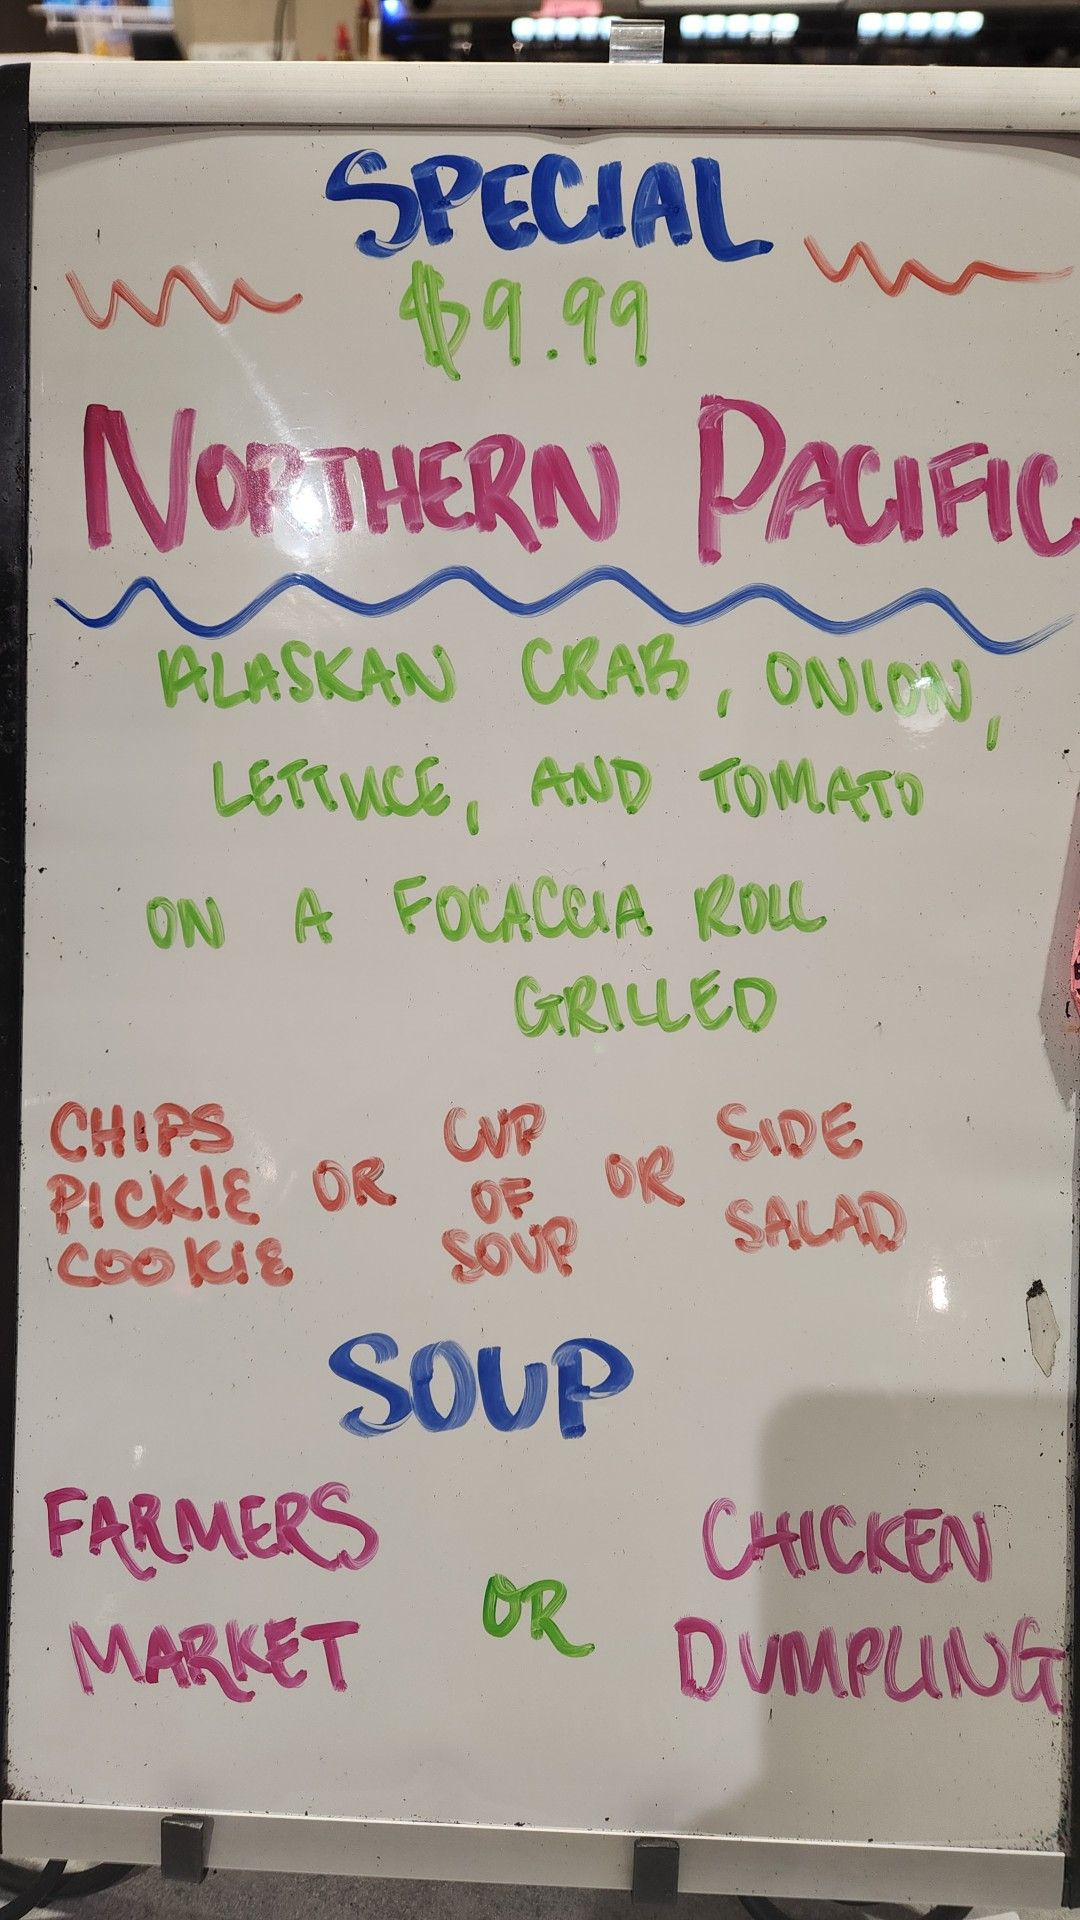 SPECIAL
$9.99
NORTHERN PACIFIC
ALASKAN CRAB, ONION,
LETTUCE, AND TOMATO
ON A FOCACCIA ROLL
GRILLED
CHIPS
PICKlE
COOKiE
OR
CUP
OF
SOUP
OR
SiDE
SALAD
SOUP
FARMERS
MARKET
OR
CHICKEN
DUMPLING